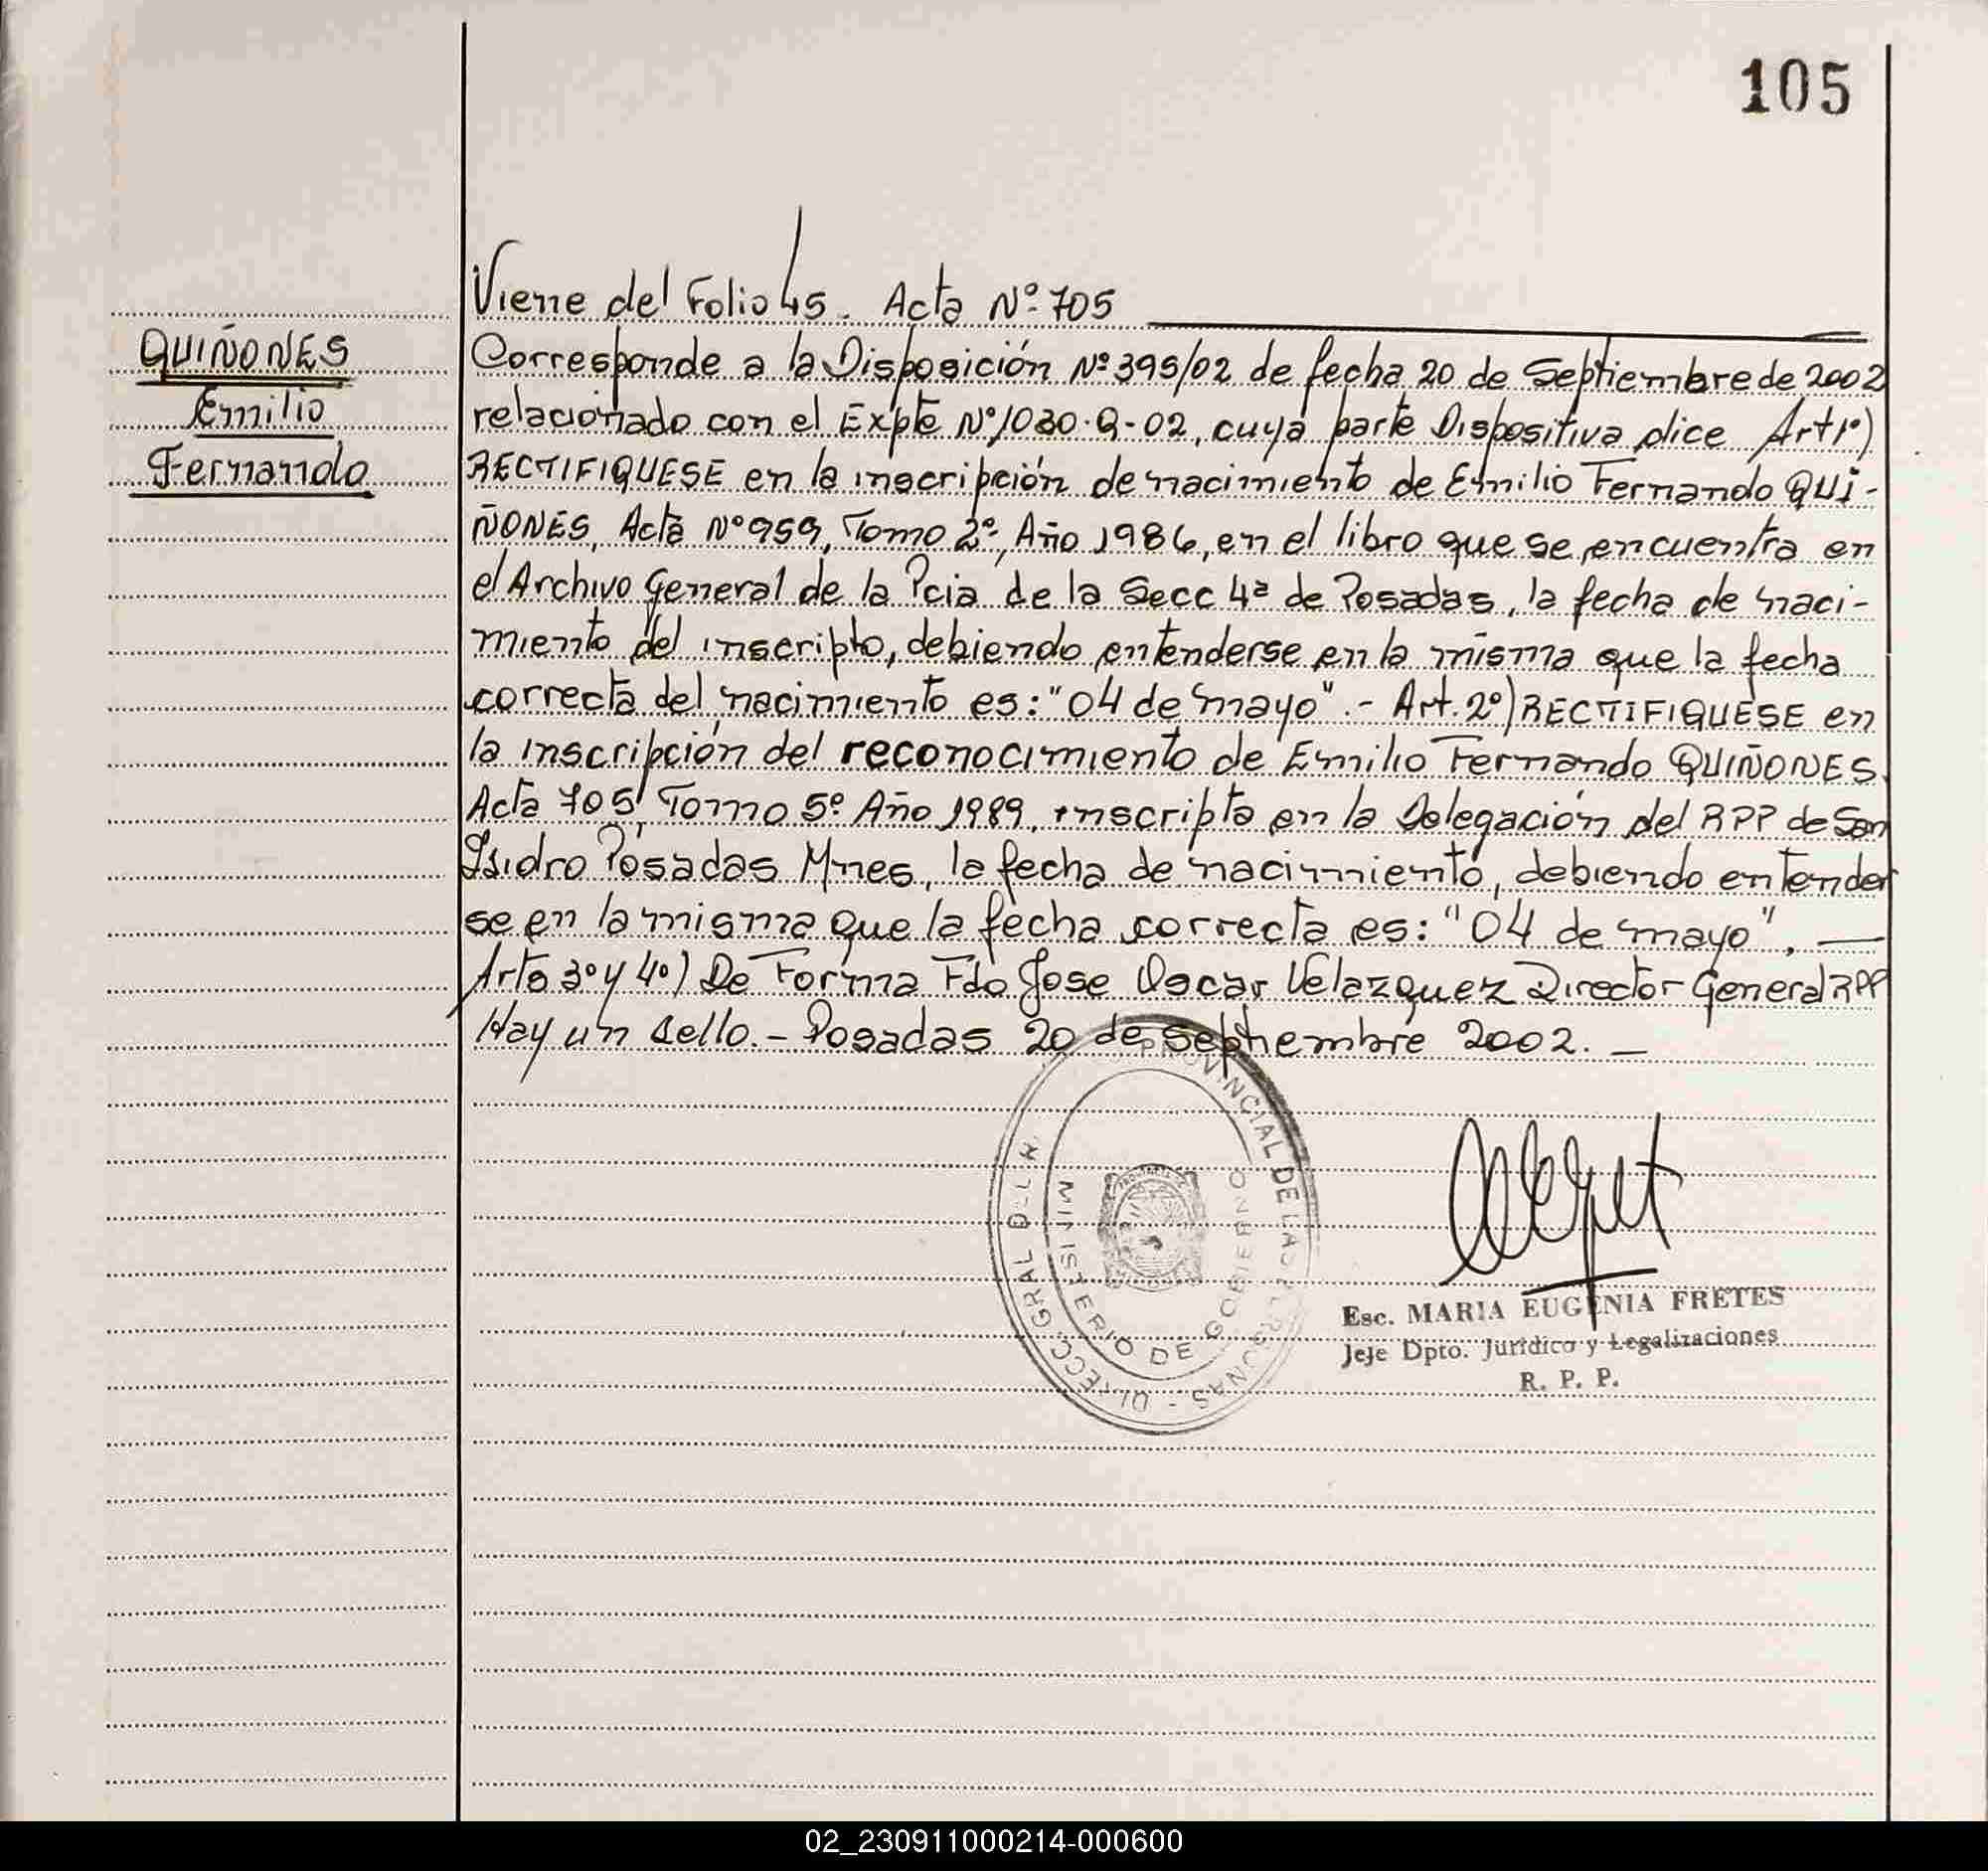 105
Viene del Folio 45. Acta Nº 705
QUIÑONES
Emilio
Fernando
Corresponde a la Disposición Nº 395/02 de fecha 20 de Septiembre de 2002
relacionado con el Expte Nº 1030-Q-02, cuya parte Dispositiva dice Art 1º)
RECTIFIQUESE en la inscripción de nacimiento de Emilio Fernando QUI-
ÑONES, Acta Nº 959, Tomo 2º, Año 1986, en el libro que se encuentra en
el Archivo General de la Pcia de la Secc 4ª de Posadas, la fecha de naci-
miento del inscripto, debiendo entenderse en la misma que la fecha
correcta del nacimiento es: "04 de mayo".- Art. 2º) RECTIFIQUESE en
la inscripción del reconocimiento de Emilio Fernando QUIÑONES.
Acta 705, Tomo 5º Año 1989, inscripta en la Delegación del RPP de San
Isidro Posadas Mnes, la fecha de nacimiento, debiendo entender
se en la misma que la fecha correcta es: "04 de mayo", —
Arts 3º y 4º) De Forma Fdo Jose Oscar Velazquez Director General RPP
Hay un sello. - Posadas 20 de Septiembre 2002. —
PROVINCIAL DE LAS PERSONAS - DIRECC. GRAL
MINISTERIO DE GOBIERNO
Esc. MARIA EUGENIA FRETES
Jefe Dpto. Jurídico y Legalizaciones
R. P. P.
02_230911000214-000600